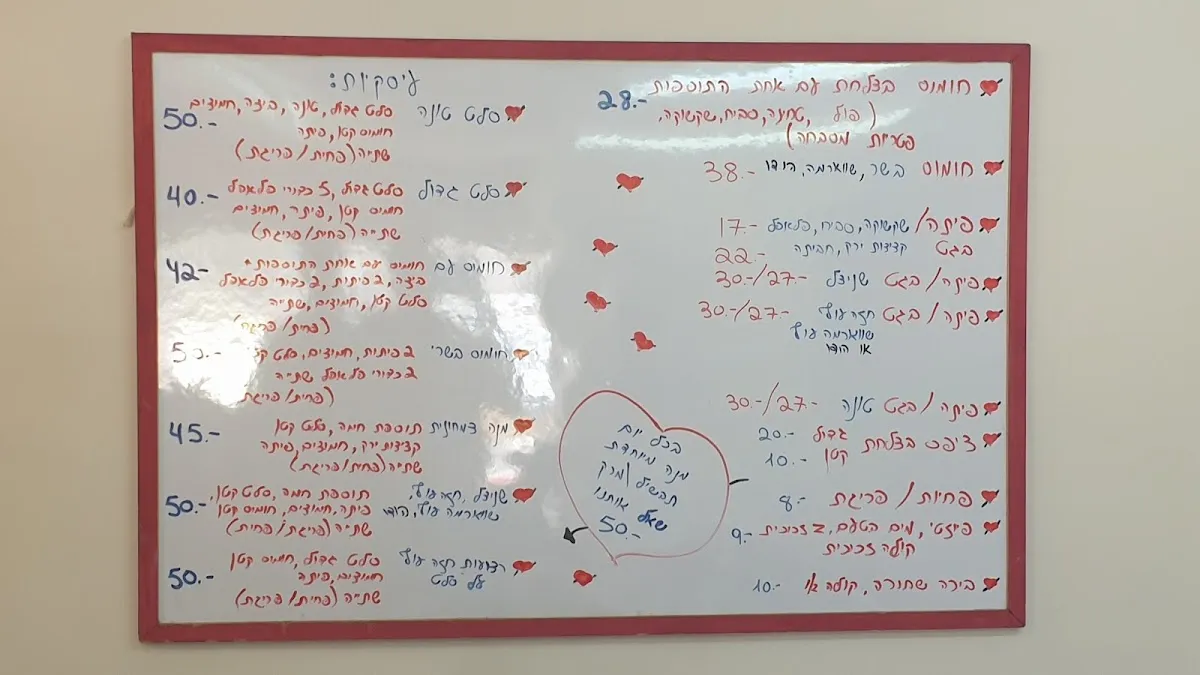 חומוס בצלחת עם אחת התוספות 28.-
(פול, טחינה, סביח, שקשוקה,
פטריות מסבחה)
חומוס בשר, שווארמה, הודו 38.-
פיתה/ שקשוקה, סביח, פלאפל 17.-
בגט קציצות ירק, חביתה 22.-
פיתה/ בגט שניצל 30.-/27.-
פיתה/ בגט חזה עוף 30.-/27.-
שווארמה עוף
או הודו
פיתה/ בגט טונה 30.-/27.-
ציפס בצלחת גדול 20.-
קטן 10.-
פחיות/ פריגת 8.-
פיוזטי, מים הטעם, זכוכית 9.-
קולה זכוכית
בירה שחורה, קולה 10.-
עיסקיות:
סלט טונה סלט גדול, טונה, ביצה, חמוצים 50.-
חומוס קטן, פיתה
שתייה (פחית/ פריגת)
סלט גדול סלט גדול, 5 כדורי פלאפל 40.-
חומוס קטן, פיתה, חמוצים
שתייה (פחית/ פריגת)
חומוס עם חומוס עם אחת התוספות + 42-
ביצה, 2 פיתות, 2 כדורי פלאפל
סלט קטן, חמוצים, שתייה
(פחית/ פריגת)
חומוס בשרי 2 פיתות, חמוצים, סלט קטן 50.-
2 כדורי פלאפל שתייה
(פחית/ פריגת)
מנה צמחונית תוספת חמה, סלט קטן 45.-
קציצות ירק, חמוצים, פיתה
שתייה (פחית/ פריגת)
שניצל, חזה עוף, תוספת חמה, סלט קטן, 50.-
שווארמה עוף, הודו פיתה, חמוצים, חומוס קטן
שתייה (פריגת/ פחית)
רצועות חזה עוף סלט גדול, חומוס קטן 50.-
על סלט חמוצים, פיתה
שתייה (פחית/ פריגת)
בכל יום
מנה מיוחדת
תבשיל/מרק
שאל אותנו
50.-